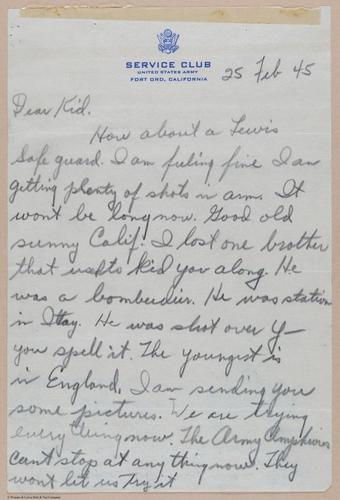 SERVICE CLUB
UNITED STATES ARMY
FORT ORD, CALIFORNIA
25 Feb 45
Dear Kid.
How about a Lewis
Safe guard. I am fuling fine I am
getting plenty of shots in arm. It
wont be long now. Good old
sunny Calif. I lost one brother
that usets kid you along. He
was a bomberdier. He was station
in Ittay. He was shot over Y—
you spell it. The youngest is
in England. I am sending you
some pictures. We are trying
everything now. The Army Amphivies
cant stop at any thing now. They
wont let us try it